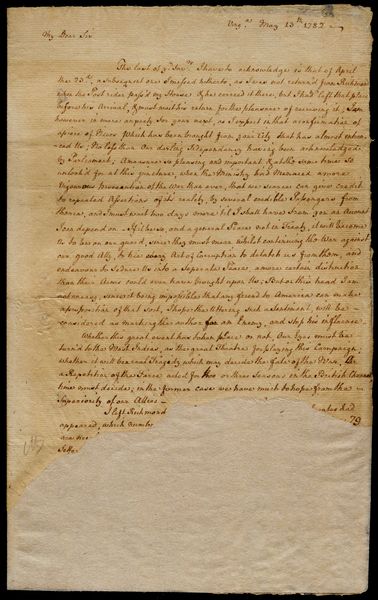 Virga. May 13th 1782
My Dear Sir
The last of yr Favrs. I have to acknowledge is that of April
the 23d, a subsequent one I missed hitherto, as I was not return'd from Richmond
when the Post rider pass'd my House & he carried it there, but I had left that place
before his Arrival, & must wait his return for the pleasure of receiving it; I am
however in more anxiety for your next, as I expect in that a confirmation of
a piece of News which has been brought from your City that has almost
us; No less than Our darling Independency having been acknowledged
by Parliament, A measure so pleasing and important & at the same time so
unlook'd for at this juncture, when the Ministry had Menaced a more
Vigourous prosecution of the War than ever, that we scarce can give credit
to repeated Assertions of its reality, by several credible Passengers from
thence, and I must wait two days more til I shall have from you an Account
I can depend on. If it be so, and a general Peace not in Treaty, it will become
Us to be on our guard, since they must mean whilst continuing the War against
our good Ally, to try every Art of Corruption to detatch us from them, and
endeavour to Seduce Us into a Seperate Peace, a more certain distruction
than their Arms could ever have brought upon Us; But on this head I am
not uneasy, since it being impossible that any friend to America can make
a proposition of that Sort, I hope the uttering such a Sentiment, will be
considered as marking the author for an Enemy, and stop his influence.
Whether this great event has taken place or not, Our Eyes must be
turn'd to the West Indies, as the great Theatre for playing this Campaign,
whether it will be a real Tragedy which may decide the fate of the War, Or
a Repetition of the Farce acted for two or three Seasons in the British Channel
time must decide; in the former case we have much to hope from the
Superiority of our Allies
I left Richmond
appeared, which number 79
are